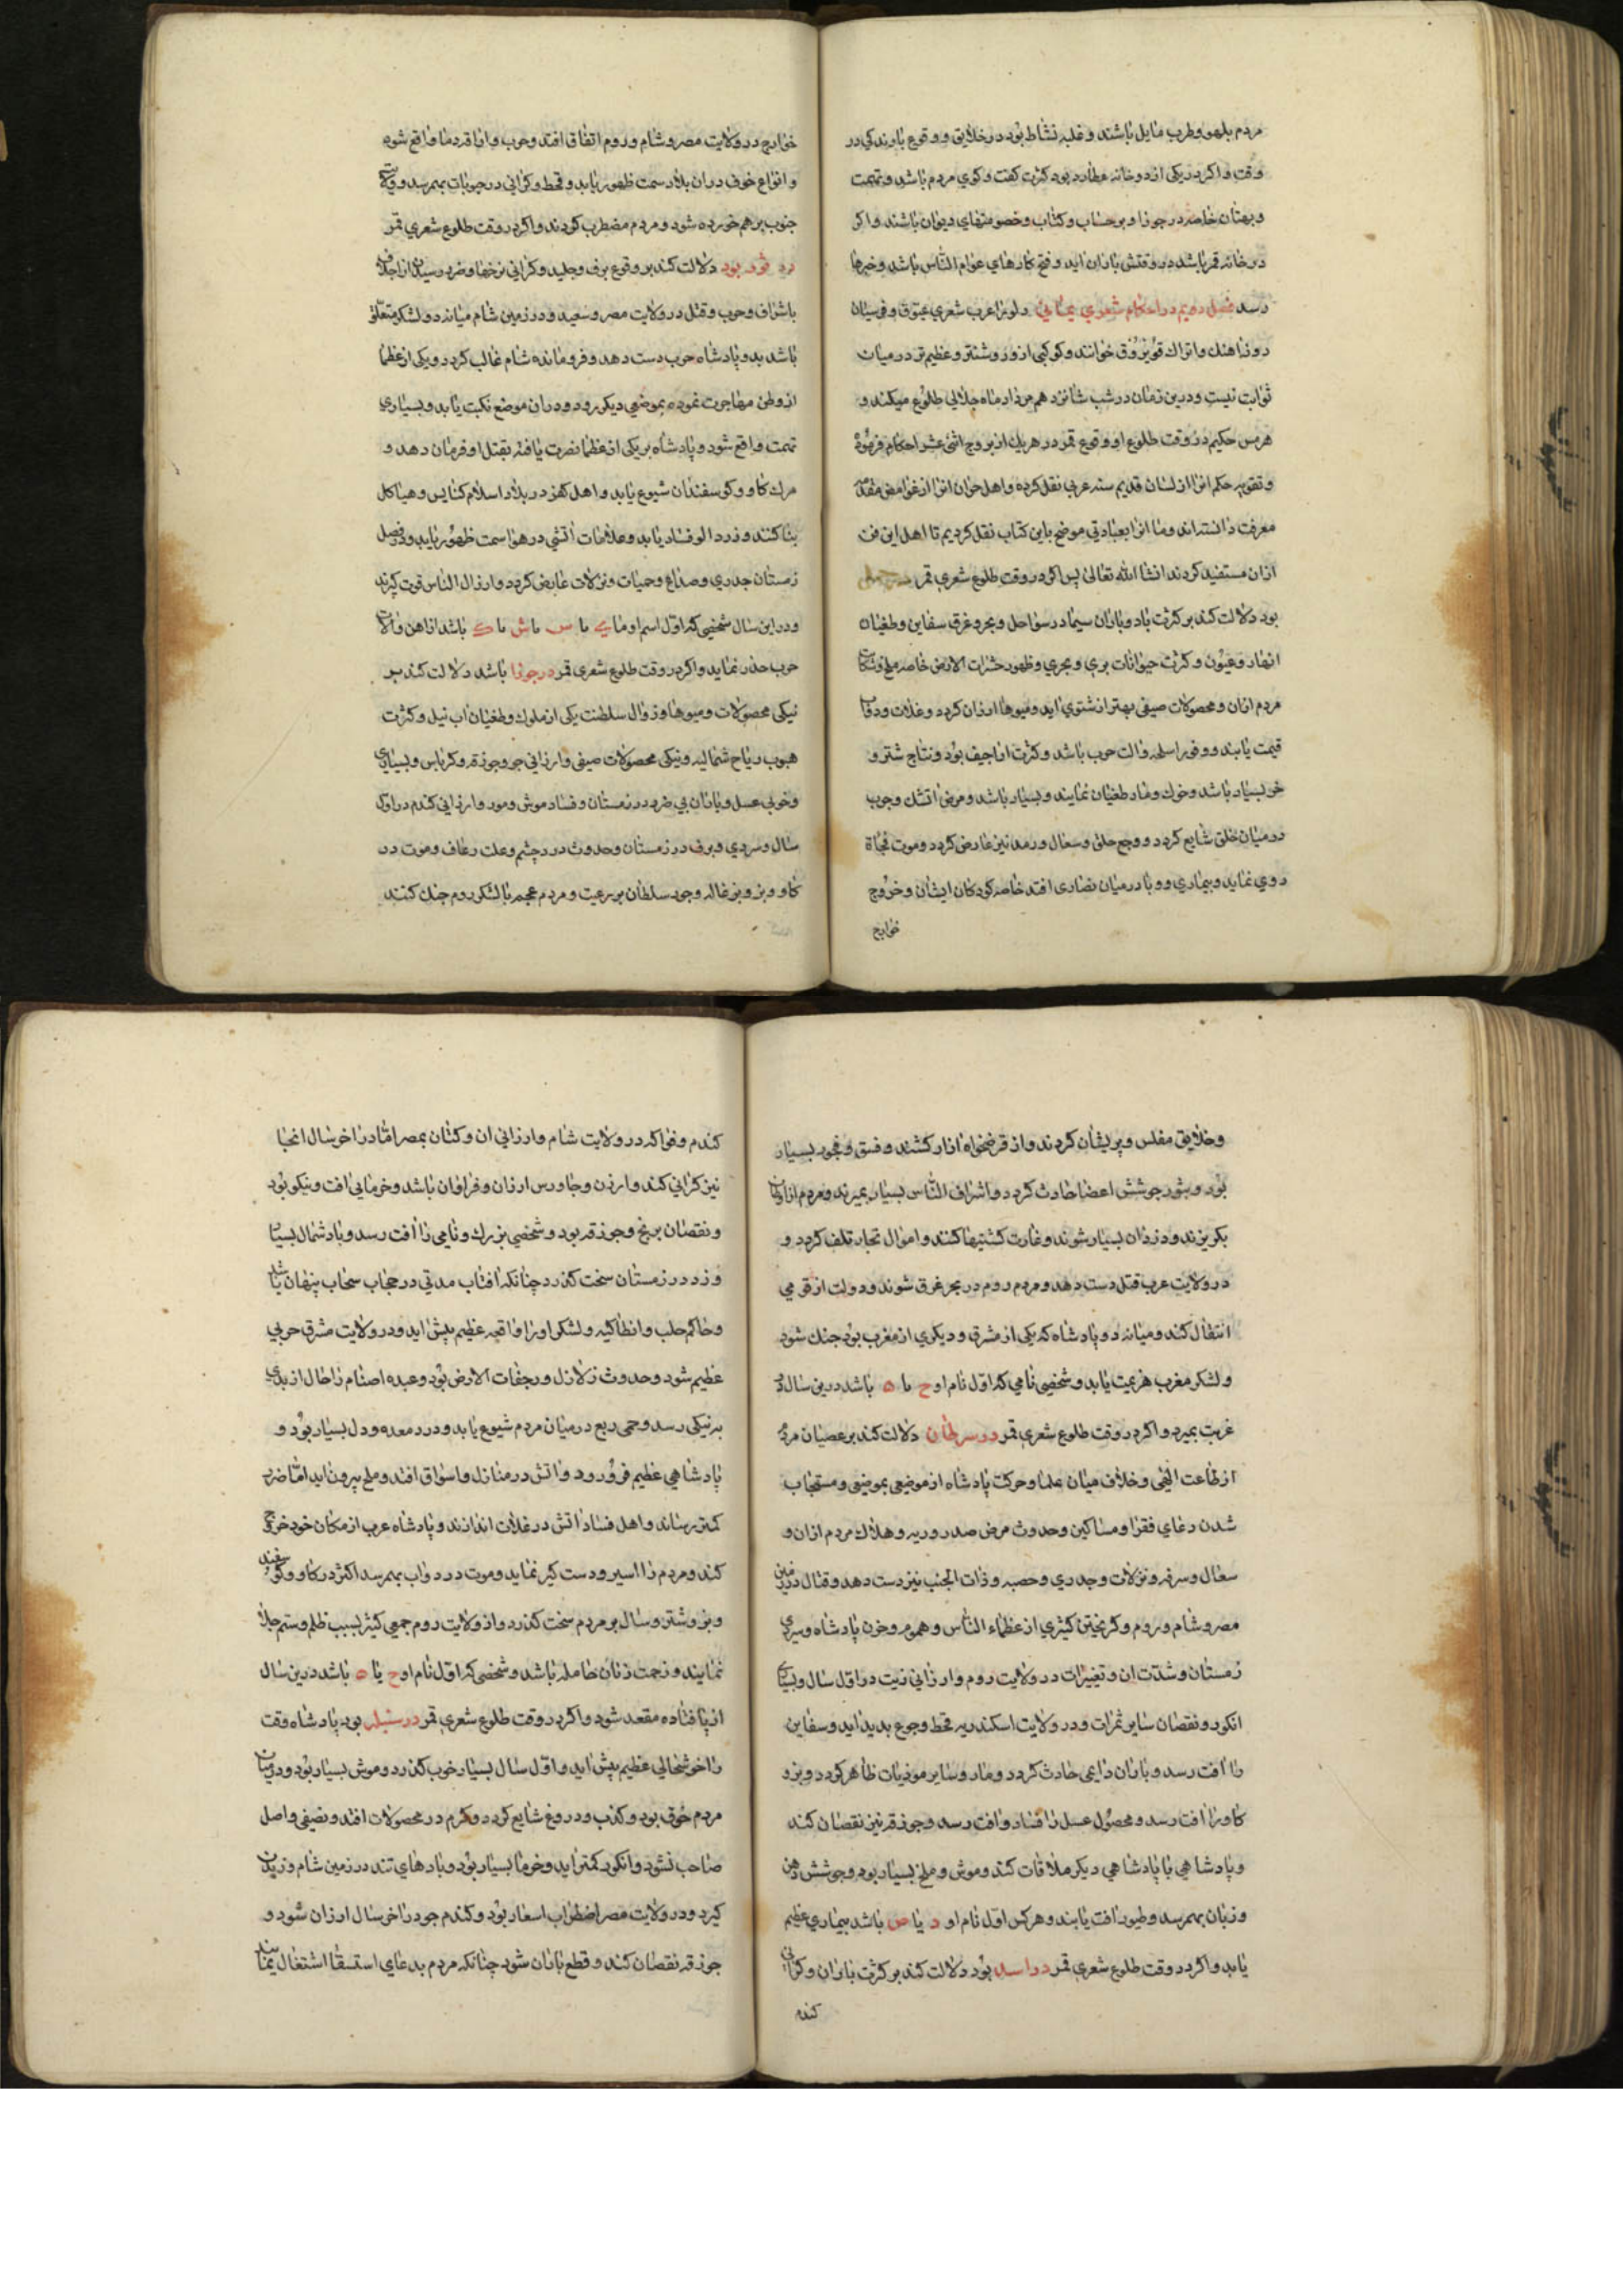 مردم بلهو و طرب مایل باشند و غلبه نشاط بود در خلایق و وقوع باوندکی در
وقت و اکر در یکی از دو خانه عطارد بود کثرت کفت و کوی مردم باشد و تهمت
و بهتان خاصه در جوزا و بر حساب و کتاب و خصومتهای دیوان باشند و اکر
در خانه قمر باشد در وقتش باران اید و فتح کارهای عوام الناس باشد و خبرها
رسد فصل دویم در احکام شعری یمانی و او را عرب شعری عبور و فرسیان
دوزاهنك و اتراك خوانند و کوکبی از و روشنتر و عظیم تر در میان
ثوابت نیست و درین زمان در شب شانزدهم مرداد ماه جلالی طلوع میکند و
هرمس حکیم در وقت طلوع او و وقوع قمر در هر یك از بروج اثنی عشر احکام فرموده
و تقویه حکم انرا از لسان قدیم سنه عربی نقل کرده و اهل حران انرا از غوامض
معرفت دانسته اند و ما انرا بعبادتی موضح باین کتاب نقل کردیم تا اهل این فن
ازان مستفید کردند انشا الله تعالی پس اکر در وقت طلوع شعری قمر در حمل
بود دلالت کند بر کثرت باد و باران سیما در سواحل و بحر و غرق سفاین و طغیان
انهار و عیون و کثرت حیوانات بری و بحری و ظهور حشرات الارض خاصه ملخ و شکایت
مردم ازان و محصولات صیفی بهتر از شتوی اید و میوها ارزان کردد و غلات و
قیمت یابند و وفور اسلحه و الت حرب باشد و کثرت اراجیف بود و نتاج شتر و
خر بسیار باشد و خوك و مار طغیان نمایند و بسیار باشد و مرض اتشك و جرب
در میان خلق شایع کردد و وجع حلق و سعال و رمد نیز عارض کردد و موت فجاة
روی نماید و بیماری و وبا در میان نصاری افتد خاصه کودکان ایشان و خروج
خوارج
خوارج در ولایت مصر و شام و روم اتفاق افتد و حرب و اراقه دما واقع شود
و انواع خوف دران بلاد سمت ظهور یابد و قحط و کرانی در حبوبات بهمرسد و ولایت
جنوب برهم خورده شود و مردم مضطرب کردند و اکر در وقت طلوع شعری قمر
در ثور بود دلالت کند بر وقوع برف و جلید و کرانی نرخها و ضرر رسیدن از اجلاف
باشراف و حرب و قتل در ولایت مصر و سعید و در زمین شام میانه دو لشکر متعلق
باشد بدو پادشاه حرب دست دهد و فرمانده شام غالب کردد و یکی از عظما
از وطن مهاجرت نموده بموضعی دیکر رود و دران موضع نکبت یابد و بسیاری
تهمت واقع شود و پادشاه بر یکی از عظما نصرت یافته بقتل او فرمان دهد و
مرك کاو و کوسفندان شیوع یابد و اهل کفر در بلاد اسلام کنایس و هیاکل
بنا کنند و زرد الو فساد یابد و علامات اتشی در هوا سمت ظهور یابد و در فصل
زمستان جدری و صداع و حمیات و نزلات عارض کردد و ارزال الناس قوت کیرند
و در این سال شخصی که اول اسم او ما ی یا س یا ش یا ک باشد از اهن و آلات
حرب حذر نماید و اکر در وقت طلوع شعری قمر در جوزا باشد دلالت کند بر
نیکی محصولات و میوها و زوال سلطنت یکی از ملوك و طغیان اب نیل و کثرت
هبوب ریاح شمالیه و نیکی محصولات صیفی و ارزانی جو و جوزقه و کرباس و بسیاری
و خوبی عسل و باران بی ضرر در زمستان و فساد موش و مور و ارزانی کندم در اول
سال و سردی و برف در زمستان و حدوث درد چشم و علت رعاف و موت در
کاو و بز و بزغاله و جور سلطان بر رعیت و مردم عجم با لشکر روم جنك کنند
و خلایق مفلس و پریشان کردند و از قرضخواه ازار کشند و فسق و فجور بسیار
بود و بثور جوشش اعضا حادث کردد و اشراف الناس بسیار بمیرند و مردم از اوطان
بکریزند و دزدان بسیار شوند و غارت کشتیها کنند و اموال تجار تلف کردد و
در ولایت عرب قتل دست دهد و مردم روم در بحر غرق شوند و دولت از قومی
انتقال کند و میانه دو پادشاه که یکی از مشرق و دیکری از مغرب بود جنك شود
و لشکر مغرب هزیمت یابد و شخصی نامی که اول نام او ح یا ه باشد درین سال در
غربت بمیرد و اکر در وقت طلوع شعری قمر در سرطان دلالت کند بر عصیان مردم
از طاعت الهی و خلاف میان علما و حرکت پادشاه از موضعی بموضعی و مستجاب
شدن دعای فقرا و مساکین و حدوث مرض صدر و ریه و هلاك مردم ازان و
سعال و سرفه و نزلات و جدری و حصبه و ذات الجنب نیز دست دهد و قتال در زمین
مصر و شام و روم و کریختن کثیری از عظماء الناس و هموم و حزن پادشاه و سردی
زمستان و شدت ان و تغییرات در ولایت روم و ارزانی زیت در اول سال و بسیاری
انکور و نقصان سایر ثمرات و در ولایت اسکندریه قحط و جوع پدید اید و سفاین
را افت رسد و باران دایمی حادث کردد و مار و سایر موذیات ظاهر کردد و بز و
کاو را افت رسد و محصول عسل را فساد و افت رسد و جوزقه نیز نقصان کند
و پادشاهی با پادشاهی دیکر ملاقات کند و موش و ملخ بسیار بود و جوشش دهن
و زبان بهمرسد و طیور افت یابند و هرکس اول نام او د یا ص باشد بیماری عظیم
یابد و اکر در وقت طلوع شعری قمر در اسد بود دلالت کند بر کثرت باران و کرانی
کندم
کندم و فواکه در ولایت شام و ارزانی ان و کتان بمصر اما در اخر سال انجا
نیز کرانی کند و ارزن و جاورس ارزان و فراوان باشد و خرما بی افت و نیکو بود
و نقصان برنج و جوزقه بود و شخصی بزرك و نامی را افت رسد و باد شمال بسیار
وزد در زمستان سخت کذرد چنانکه افتاب مدتی در حجاب سحاب پنهان باشد
و حاکم حلب و انطاکیه و لشکر او را واقعه عظیم پیش اید و در ولایت مشرق حربی
عظیم شود و حدوث زلازل و رجفات الارض بود و عبده اصنام را حال از بدی
به نیکی رسد و حمی ربع در میان مردم شیوع یابد و درد معده و دل بسیار بود و
پادشاهی عظیم فرو رود و اتش در منازل و اسواق افتد و ملخ بیرون اید اما ضرر
کمتر رساند و اهل فساد اتش در غلات اندازند و پادشاه عرب از مکان خود خروج
کند و مردم را اسیر و دست کیر نماید و موت در دواب بهمرسد اکثر در کاو و کوسفند
و بز و شتر و سال بر مردم سخت کذرد و از ولایت روم جمعی کثیر بسبب ظلم و ستم جلا
نمایند و زحمت زنان حامله باشد و شخصی که اول نام او ح یا ه باشد درین سال
از پا افتاده مقعد شود و اکر در وقت طلوع شعری قمر در سنبله بود پادشاه وقت
را خوشحالی عظیم پیش اید و اول سال بسیار خوب کذرد و موش بسیار بود و در میان
مردم خوف بود و کذب و دروغ شایع کردد و کرم در محصولات افتد و نصیفی واصل
صاحب نشود و انکور کمتر اید و خرما بسیار بود و بادهای تند در زمین شام وزیدن
کیرد و در ولایت مصر اضطراب اسعار بود و کندم جو در اخر سال ارزان شود و
جوزقه نقصان کند و قطع باران شود چنانکه مردم بدعای استسقا اشتغال نمایند